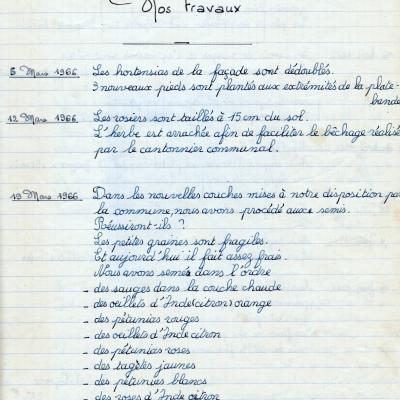 Nos travaux
5 Mars 1966. Les hortensias de la façade sont dédoublés.
3 nouveaux pieds sont plantés aux extrémités de la plate-
bande
12 Mars 1966. Les rosiers sont taillés à 15 cm du sol.
L'herbe est arrachée afin de faciliter le bêchage réalisé
par le cantonnier communal.
19 Mars 1966. Dans les nouvelles couches mises à notre disposition par
la commune, nous avons procédé aux semis.
Réussiront-ils ?
Les petites graines sont fragiles.
Et aujourd'hui il fait assez frais.
Nous avons semés dans l'ordre
- des sauges dans la couche chaude
- des œillets d'Inde (citron) orange
- des pétunias rouges
- des œillets d'Inde citron
- des pétunias roses
- des tagètes jaunes
- des pétunias blancs
- des roses d'Inde citron